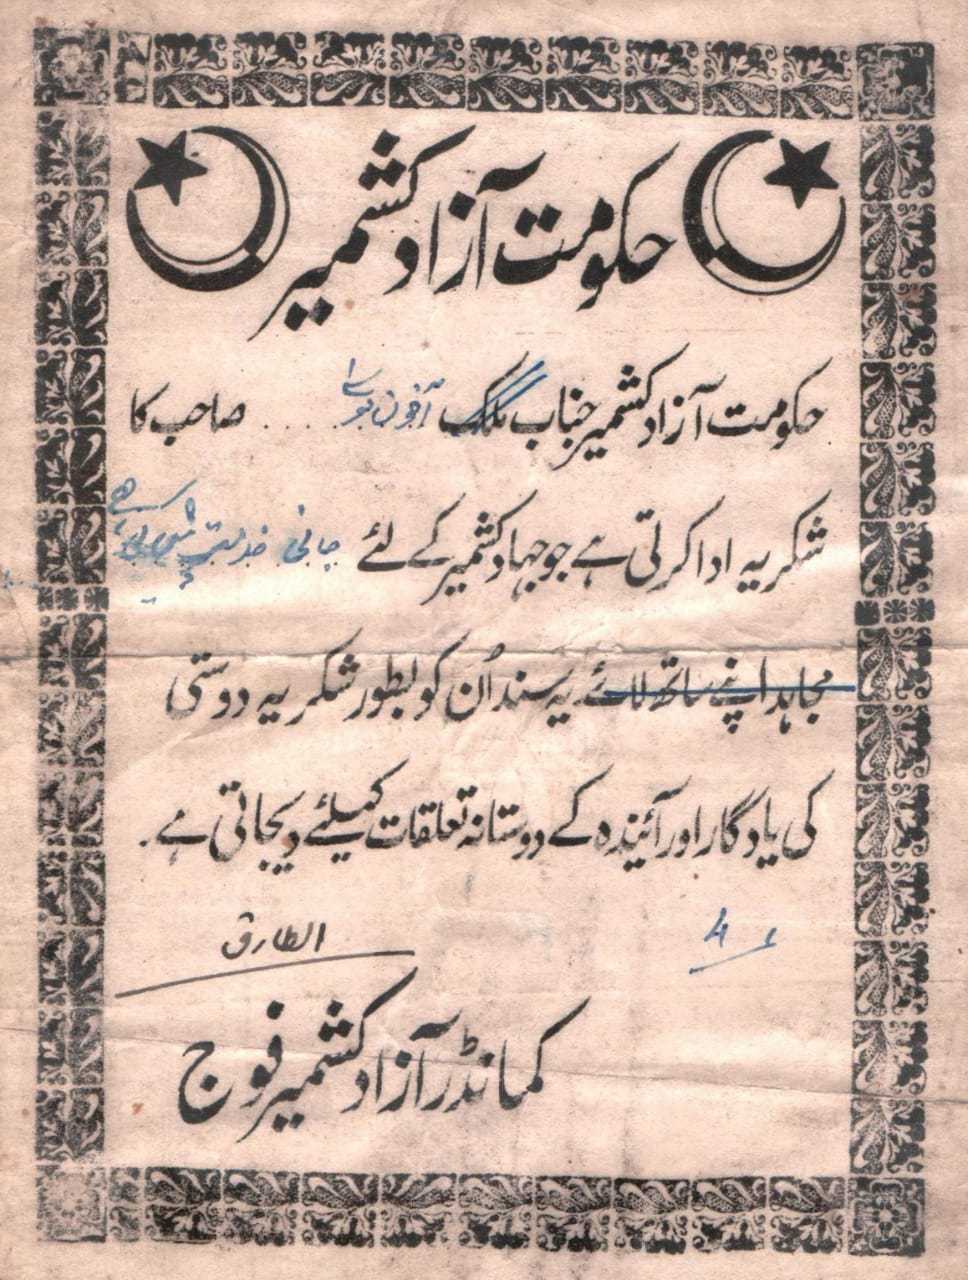 حکومت آزاد کشمیر
حکومت آزاد کشمیر جناب ملک .... صاحب کا
شکریہ ادا کرتی ہے جو جہاد کشمیر کے لئے جانی خدمت
مجاہد اپنے ساتھ لائے یہ سند اُن کو بطور شکریہ دوستی
کی یادگار اور آئیندہ کے دوستانہ تعلقات کیلئے دیجاتی ہے۔
الطارق
کمانڈر آزاد کشمیر فوج